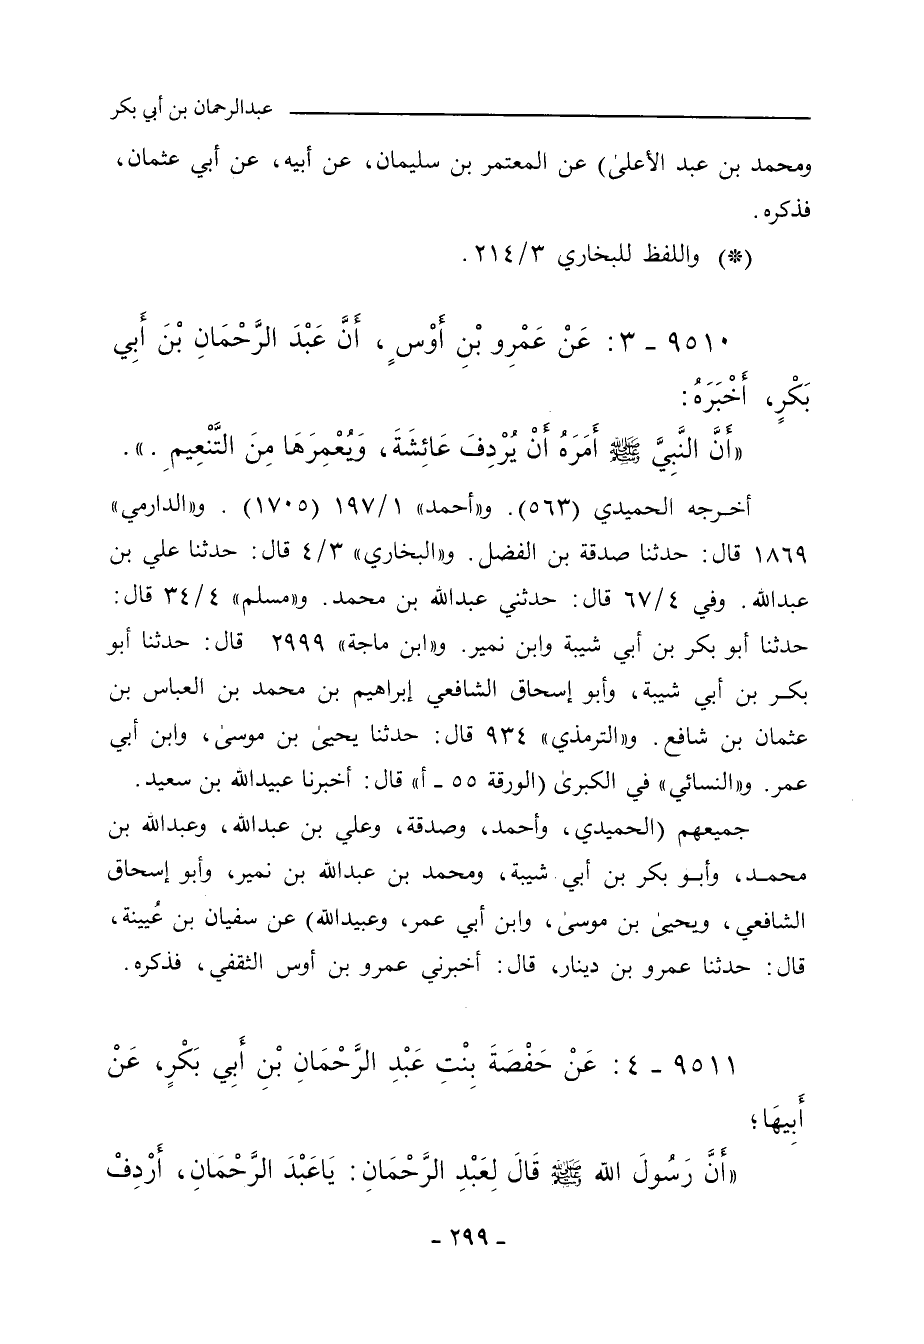 عبدالرحمان بن أبي بكر
ومحمد بن عبد الأعلىٰ) عن المعتمر بن سليمان، عن أبيه، عن أبي عثمان،
فذكره.
(*) واللفظ للبخاري ٢١٤/٣.
٩٥١٠ ـ ٣: عَنْ عَمْرِو بْنِ أَوْسٍ، أَنَّ عَبْدَ الرَّحْمَانِ بْنَ أَبِي
بَكْرٍ، أَخْبَرَهُ:
«أَنَّ النَّبِيَّ ﷺ أَمَرَهُ أَنْ يُرْدِفَ عَائِشَةَ، وَيُعْمِرَهَا مِنَ التَّنْعِيمِ.».
أخرجه الحميدي (٥٦٣). و«أحمد» ١٩٧/١ (١٧٠٥). و«الدارمي»
١٨٦٩ قال: حدثنا صدقة بن الفضل. و«البخاري» ٤/٣ قال: حدثنا علي بن
عبدالله. وفي ٦٧/٤ قال: حدثني عبدالله بن محمد. و«مسلم» ٣٤/٤ قال:
حدثنا أبو بكر بن أبي شيبة وابن نمير. و«ابن ماجة» ٢٩٩٩ قال: حدثنا أبو
بكر بن أبي شيبة، وأبو إسحاق الشافعي إبراهيم بن محمد بن العباس بن
عثمان بن شافع. و«الترمذي» ٩٣٤ قال: حدثنا يحيىٰ بن موسىٰ، وابن أبي
عمر. و«النسائي» في الكبرىٰ (الورقة ٥٥ ـ أ» قال: أخبرنا عبيدالله بن سعيد.
جميعهم (الحميدي، وأحمد، وصدقة، وعلي بن عبدالله، وعبدالله بن
محمد، وأبو بكر بن أبي شيبة، ومحمد بن عبدالله بن نمير، وأبو إسحاق
الشافعي، ويحيىٰ بن موسىٰ، وابن أبي عمر، وعبيدالله) عن سفيان بن عُيينة،
قال: حدثنا عمرو بن دينار، قال: أخبرني عمرو بن أوس الثقفي، فذكره.
٩٥١١ ـ ٤: عَنْ حَفْصَةَ بِنْتِ عَبْدِ الرَّحْمَانِ بْنِ أَبِي بَكْرٍ، عَنْ
أَبِيهَا؛
«أَنَّ رَسُولَ الله ﷺ قَالَ لِعَبْدِ الرَّحْمَانِ: يَاعَبْدَ الرَّحْمَانِ، أَرْدِفْ
ـ ٢٩٩ ـ